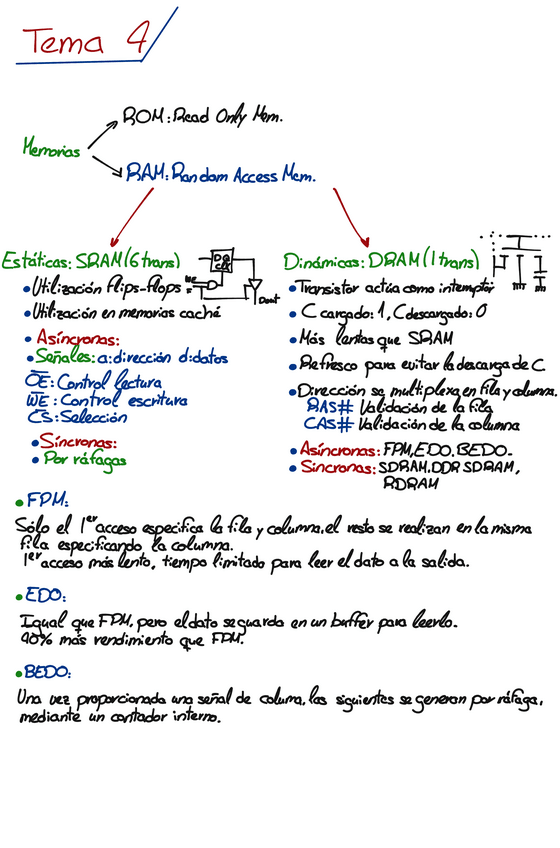 Tema 4
ROM: Read Only Mem.
Memorias
RAM: Random Access Mem.
Estáticas: SRAM (6 trans)
• Utilización flips-flops
• Utilización en memorias caché
• Asíncronas:
• Señales: a: dirección d: datos
OE: Control lectura
WE: Control escritura
CS: Selección
• Síncronas:
• Por ráfagas
D Q
CLK
WE
Dout
Dinámicas: DRAM (1 trans)
• Transistor actúa como interruptor
• C cargado: 1, C descargado: 0
• Más lentas que SRAM
• Refresco para evitar la descarga de C
• Dirección se multiplexa en fila y columna.
RAS# Validación de la fila
CAS# Validación de la columna
• Asíncronas: FPM, EDO, BEDO.
• Síncronas: SDRAM, DDR SDRAM,
RDRAM
• FPM:
Sólo el 1er acceso especifica la fila y columna, el resto se realizan en la misma
fila especificando la columna.
1er acceso más lento, tiempo limitado para leer el dato a la salida.
• EDO:
Igual que FPM, pero el dato se guarda en un buffer para leerlo.
40% más rendimiento que FPM.
• BEDO:
Una vez proporcionada una señal de columa, las siguientes se generan por ráfaga,
mediante un contador interno.